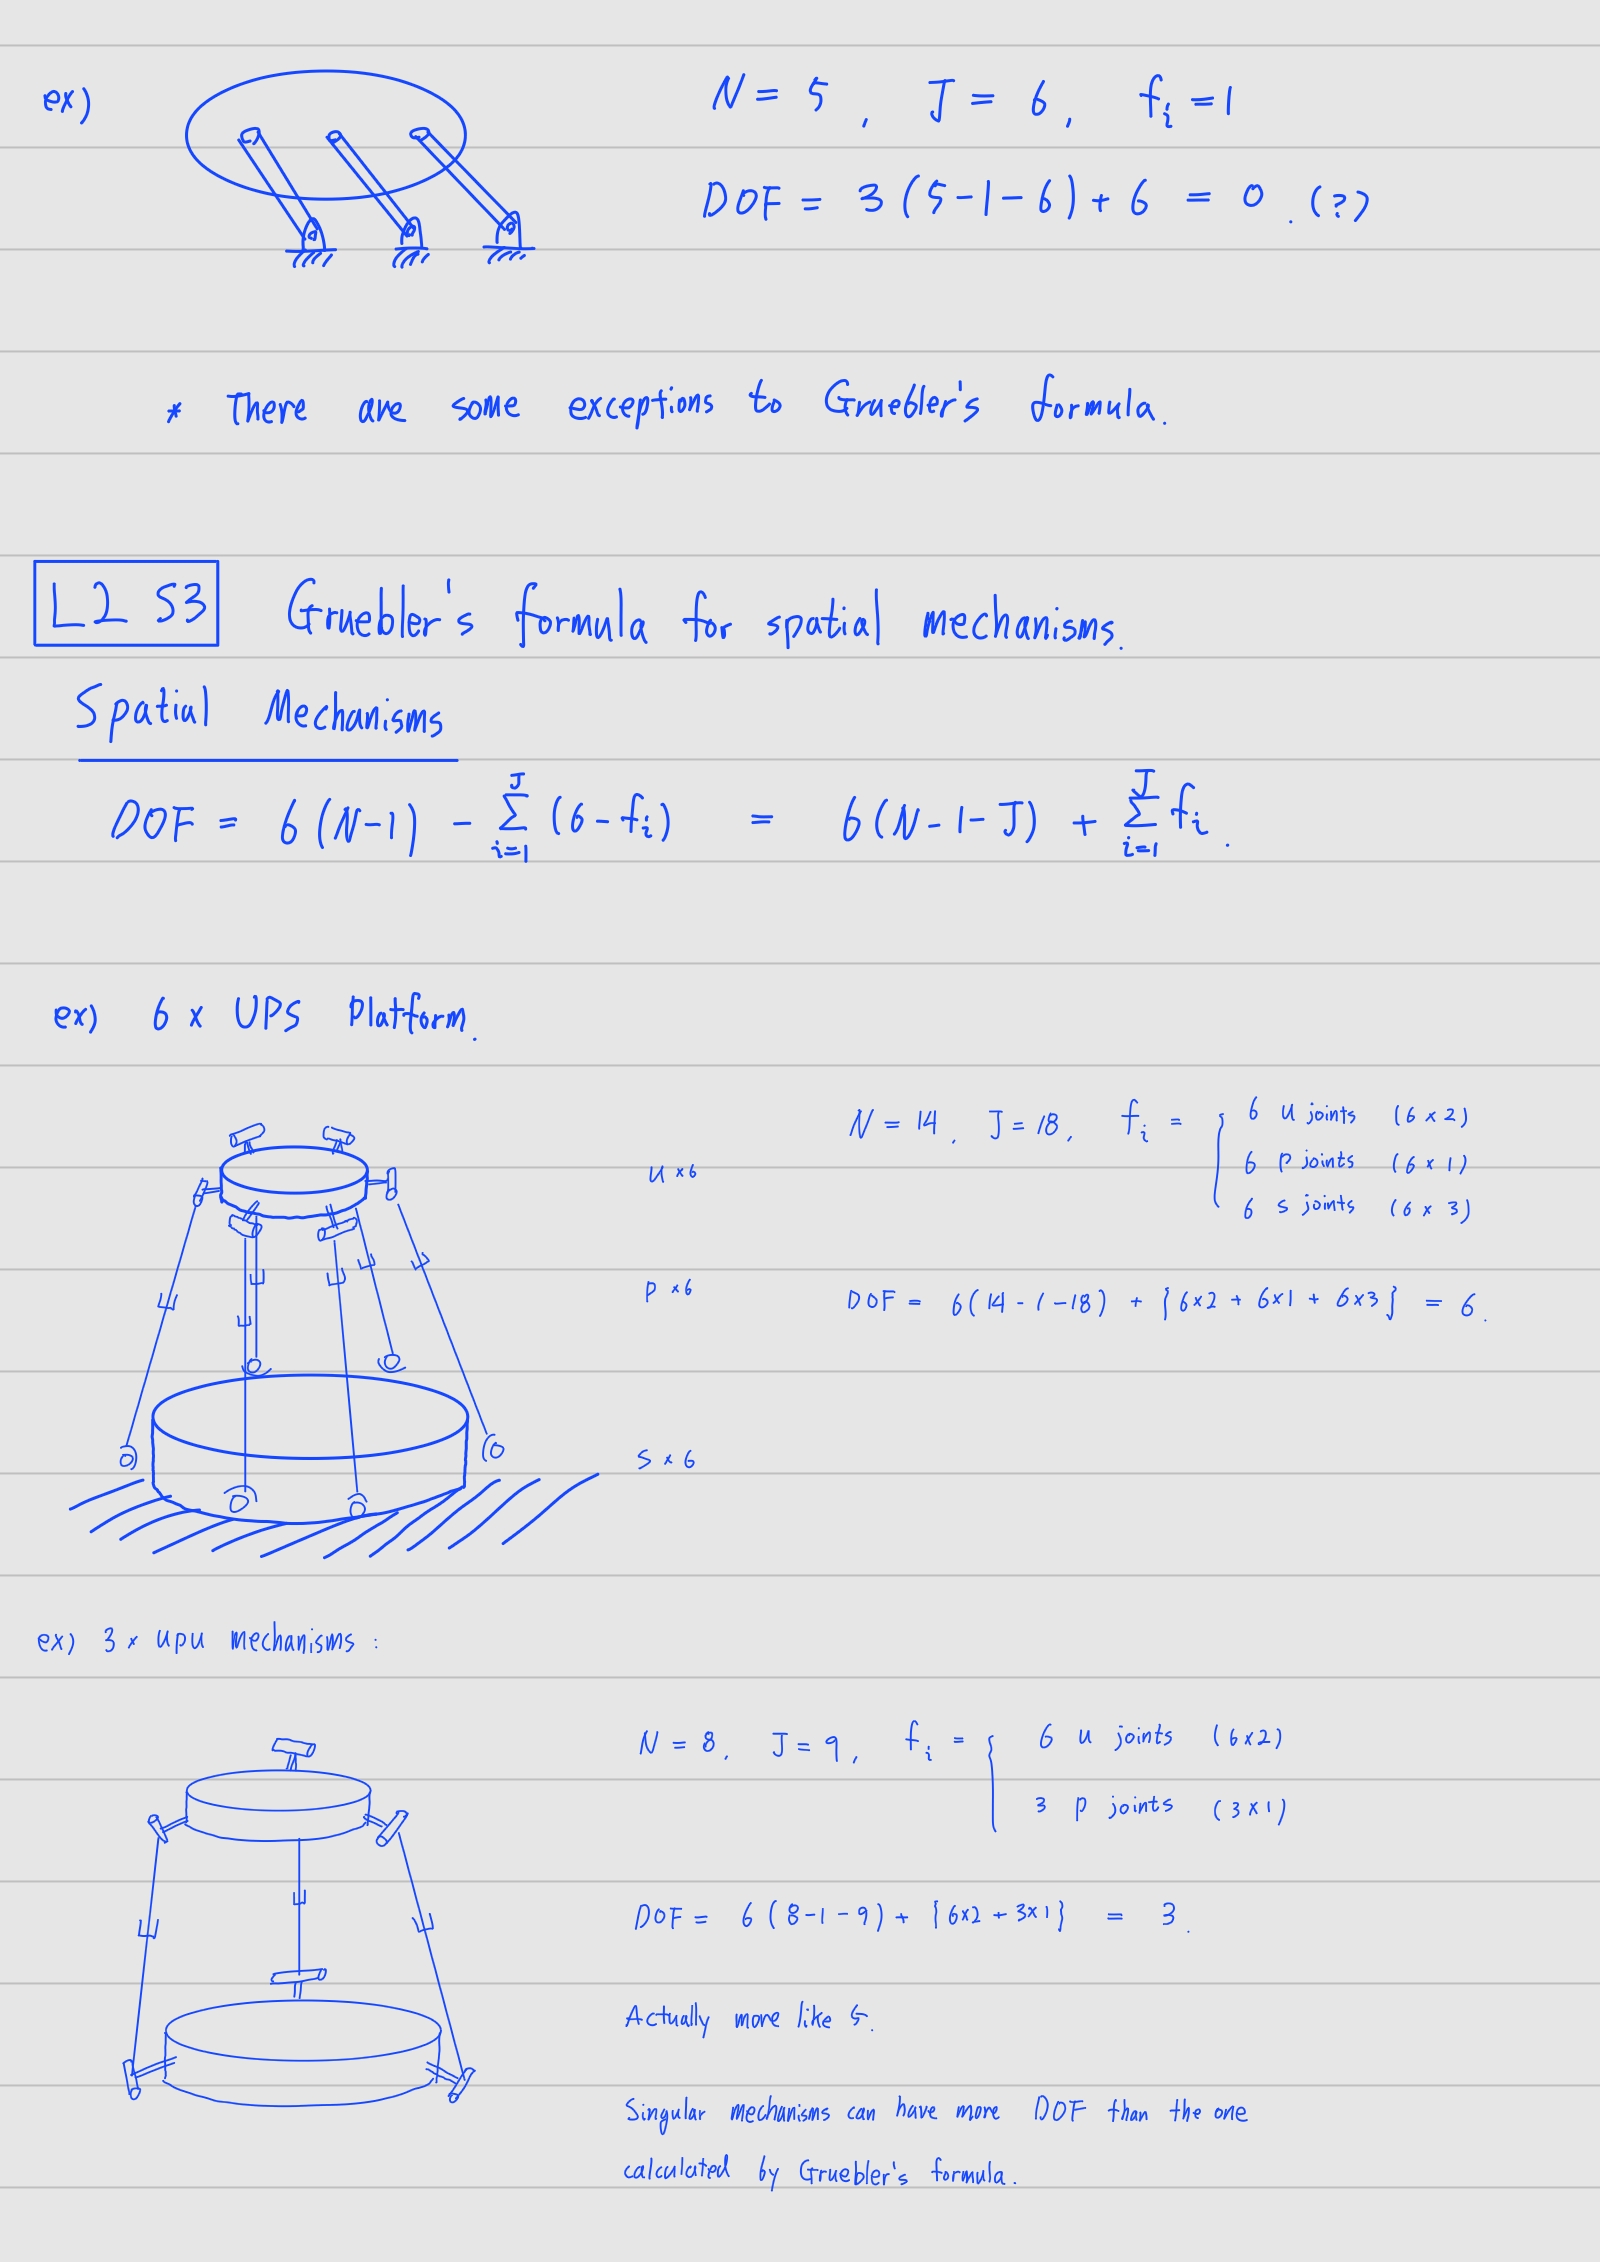 ex)
N = 5 , J = 6 , fᵢ = 1
DOF = 3 (5-1-6) + 6 = 0 . (??)
* There are some exceptions to Gruebler's formula.
L2 S3 Gruebler's formula for spatial mechanisms.
Spatial Mechanisms
DOF = 6 (N-1) - Σ_{i=1}^{J} (6 - fᵢ) = 6 (N - 1 - J) + Σ_{i=1}^{J} fᵢ .
ex) 6 x UPS Platform.
N = 14 , J = 18 , fᵢ = { 6 u joints (6 x 2)
6 p joints (6 x 1)
6 s joints (6 x 3)
u x 6
p x 6
DOF = 6 (14 - 1 - 18) + {6x2 + 6x1 + 6x3} = 6 .
S x 6
ex) 3 x upu mechanisms :
N = 8 , J = 9 , fᵢ = { 6 u joints (6x2)
3 p joints (3x1)
DOF = 6 (8-1-9) + {6x2 + 3x1} = 3 .
Actually more like 5.
Singular mechanisms can have more DOF than the one
calculated by Gruebler's formula.